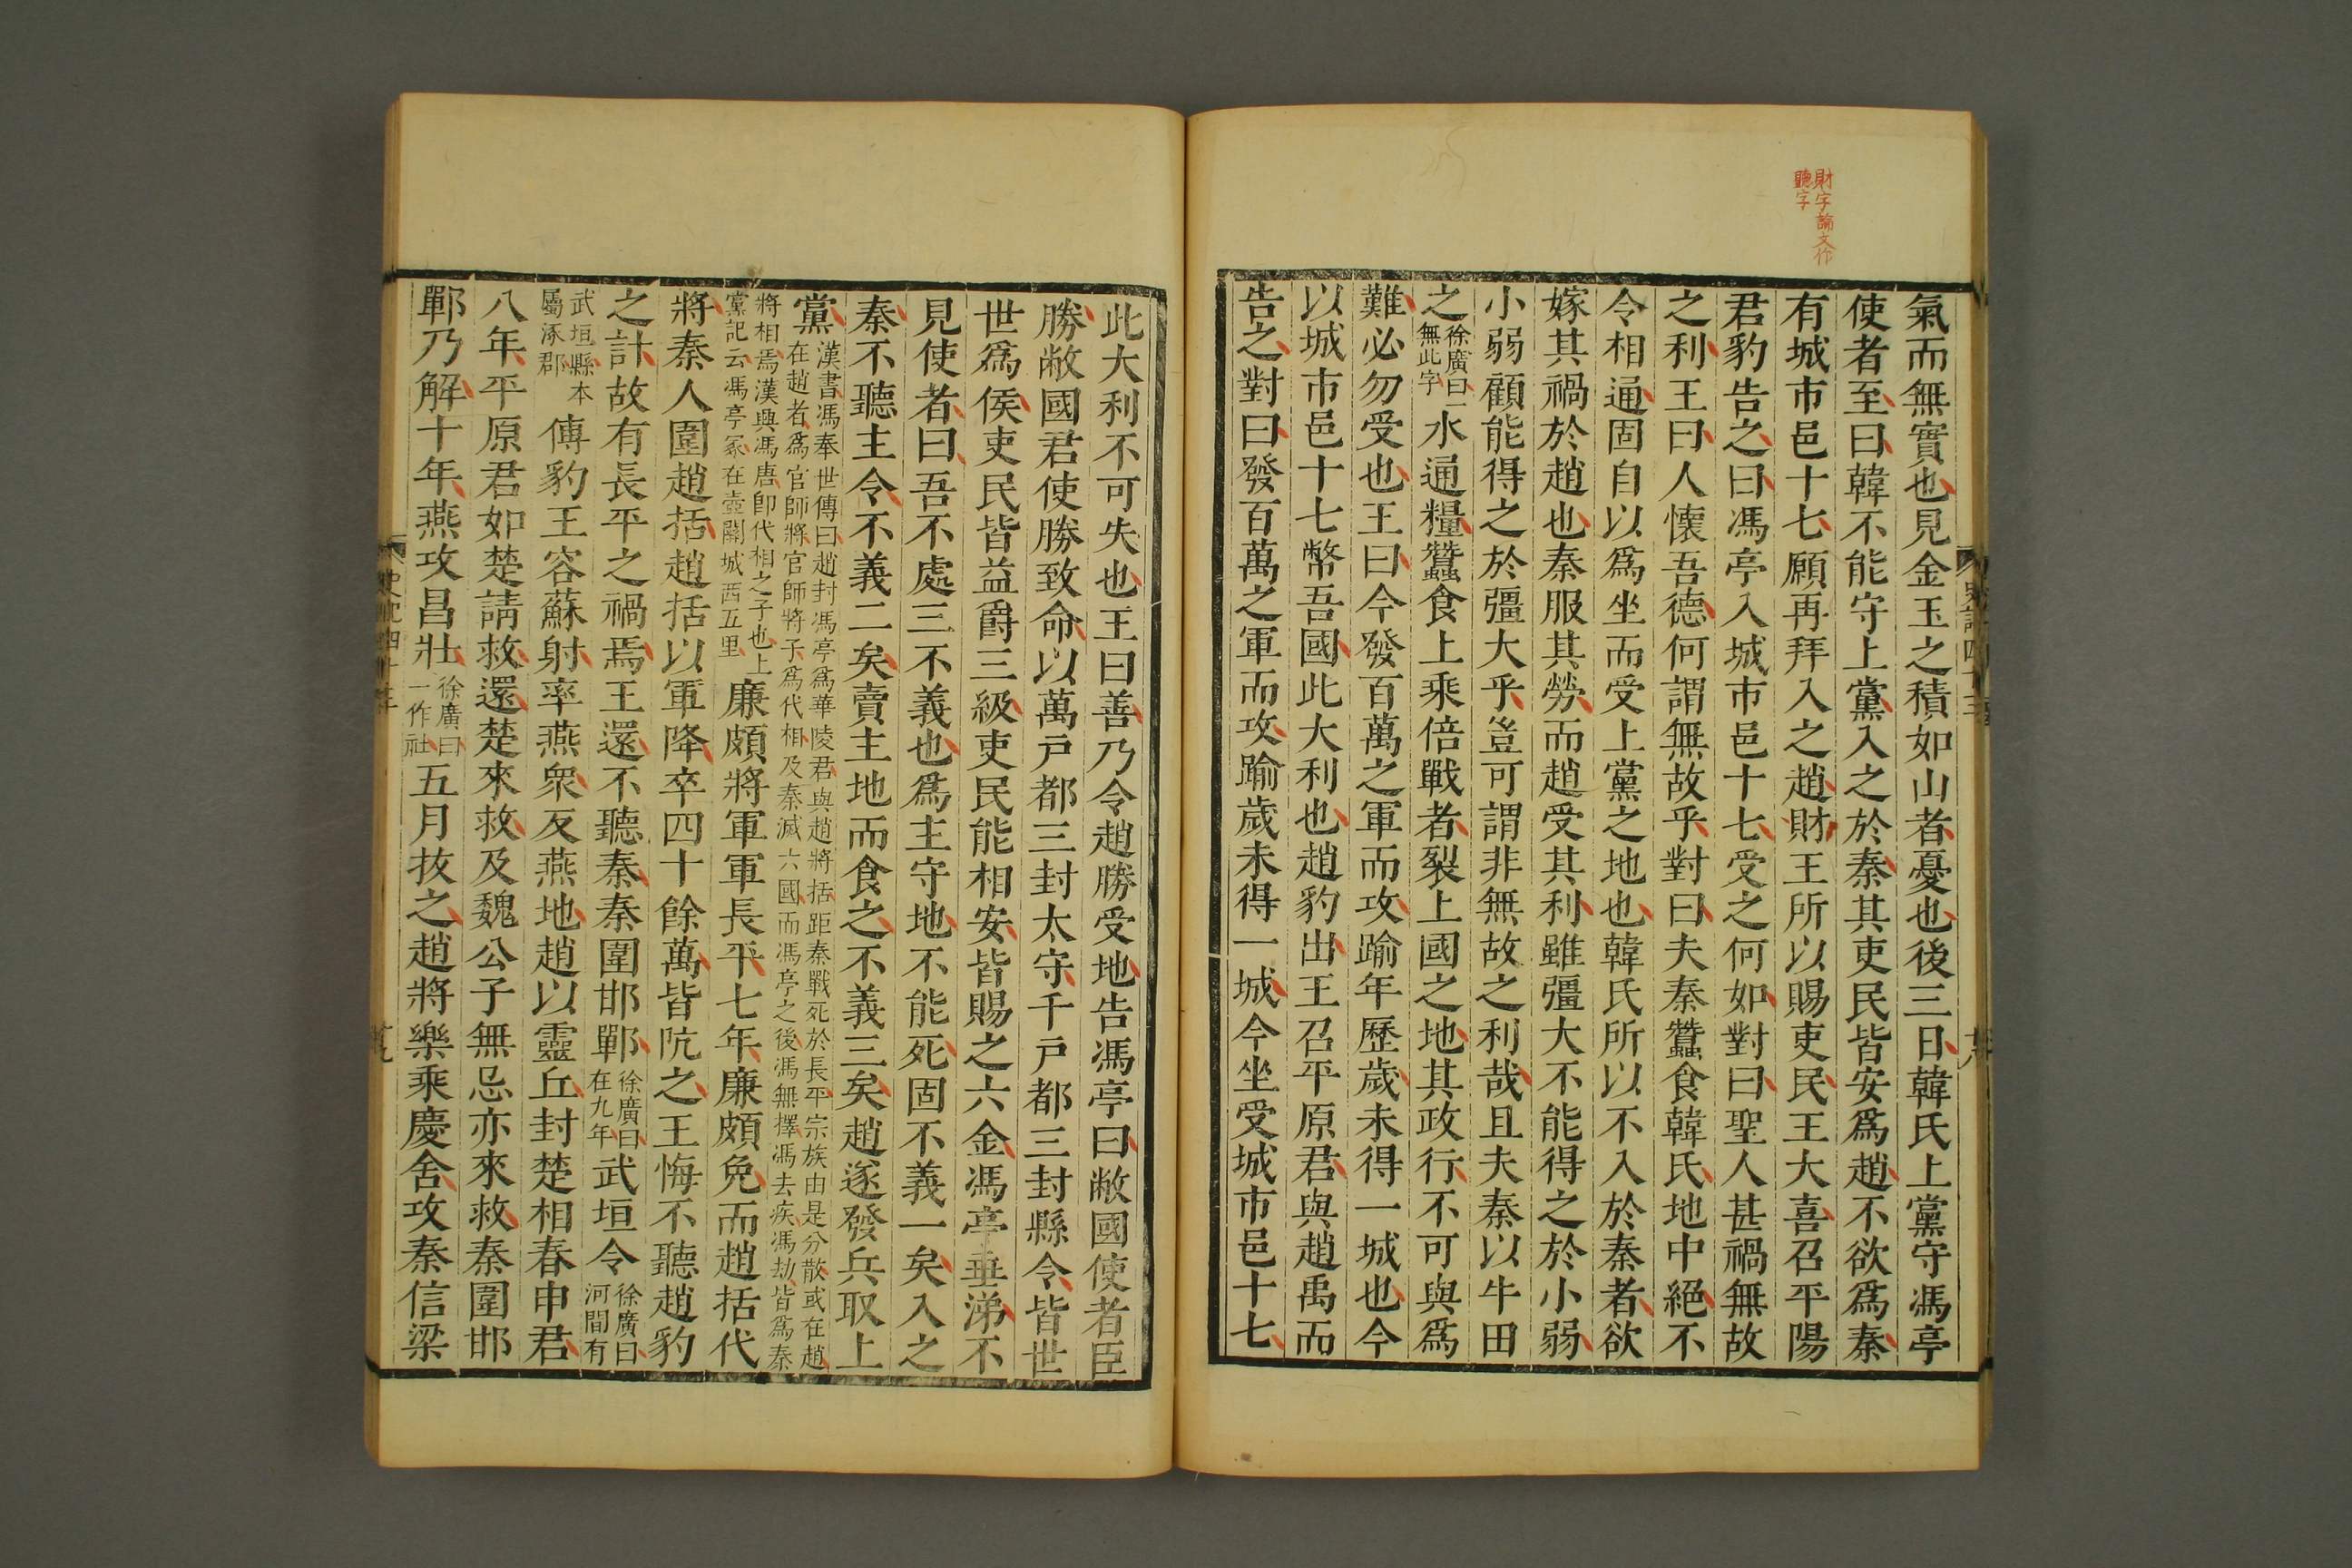 財字論文作
聽字
氣而無實也見金玉之積如山者憂也後三日韓氏上黨守馮亭
使者至曰韓不能守上黨入之於秦其吏民皆安爲趙不欲爲秦
有城市邑十七願再拜入之趙財王所以賜吏民王大喜召平陽
君豹告之曰馮亭入城市邑十七受之何如對曰聖人甚禍無故
之利王曰人懷吾德何謂無故乎對曰夫秦蠶食韓氏地中絕不
令相通固自以爲坐而受上黨之地也韓氏所以不入於秦者欲
嫁其禍於趙也秦服其勞而趙受其利雖彊大不能得之於小弱
小弱顧能得之於彊大乎豈可謂非無故之利哉且夫秦以牛田
之徐廣曰一無此字水通糧蠶食上乘倍戰者裂上國之地其政行不可與爲
難必勿受也王曰今發百萬之軍而攻踰年歷歲未得一城也今
以城市邑十七幣吾國此大利也趙豹出王召平原君與趙禹而
告之對曰發百萬之軍而攻踰歲未得一城今坐受城市邑十七
此大利不可失也王曰善乃令趙勝受地告馮亭曰敝國使者臣
勝敝國君使勝致命以萬戶都三封太守千戶都三封縣令皆世
世爲侯吏民皆益爵三級吏民能相安皆賜之六金馮亭垂涕不
見使者曰吾不處三不義也爲主守地不能死固不義一矣入之
秦不聽主令不義二矣賣主地而食之不義三矣趙遂發兵取上
黨漢書馮奉世傳曰趙封馮亭爲華陵君與趙將括距秦戰死於長平宗族由是分散或在趙
在趙者爲官師將官師將子爲代相及秦滅六國而馮亭之後馮無擇馮去疾馮劫皆爲秦
將相焉漢興馮唐卽代相之子也上
黨記云馮亭冢在壺關城西五里廉頗將軍軍長平七年廉頗免而趙括代
將秦人圍趙括趙括以軍降卒四十餘萬皆阬之王悔不聽趙豹
之計故有長平之禍焉王還不聽秦秦圍邯鄲徐廣曰在九年武垣令徐廣曰河間有
武垣縣本屬涿郡傅豹王容蘇射率燕衆反燕地趙以靈丘封楚相春申君
八年平原君如楚請救還楚來救及魏公子無忌亦來救秦圍邯
鄲乃解十年燕攻昌壯徐廣曰一作社五月拔之趙將樂乘慶舍攻秦信梁